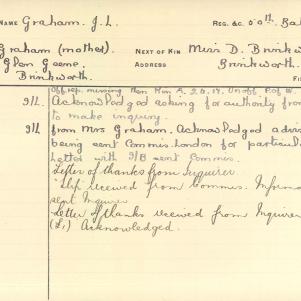 NAME Graham. J. L. REG. &C. 50th. Bat
Graham (mother) NEXT OF KIN Miss D. Brinkw
Glen Geene. ADDRESS Brinkworth.
Brinkworth. FI
Off. rep. missing
9/L Acknowledged asking for authority from
to make inquiry.
9/L from Mrs Graham. Acknowledged advis
being sent Commis. London for particul
Letter with I/B sent Commis.
Letter of thanks from Inquirer.
Slip received from Commis. Informa
sent Inquirer
Letter of thanks received from Inquirer
Acknowledged.